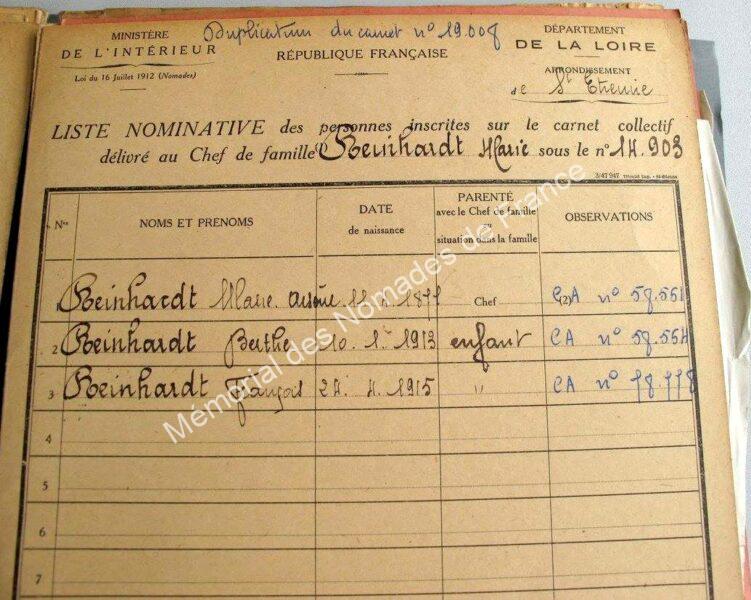 Duplicatum du carnet n° 19.008
MINISTÈRE
DE L'INTÉRIEUR
Loi du 16 Juillet 1912 (Nomades)
RÉPUBLIQUE FRANÇAISE
DÉPARTEMENT
DE LA LOIRE
ARRONDISSEMENT
de St Etienne
LISTE NOMINATIVE des personnes inscrites sur le carnet collectif
délivré au Chef de famille Reinhardt Marie sous le n° 14.903
3/47 947
Nos NOMS ET PRENOMS DATE de naissance PARENTÉ avec le Chef de famille ou situation dans la famille OBSERVATIONS
1 Reinhardt Marie 1877 Chef (2) CA n° 58.551
2 Reinhardt Berthe 10. 1. 1913 enfant CA n° 58.554
3 Reinhardt François 24. 4. 1915 " CA n° 78.778
4
5
6
7
Mémorial des Nomades de France